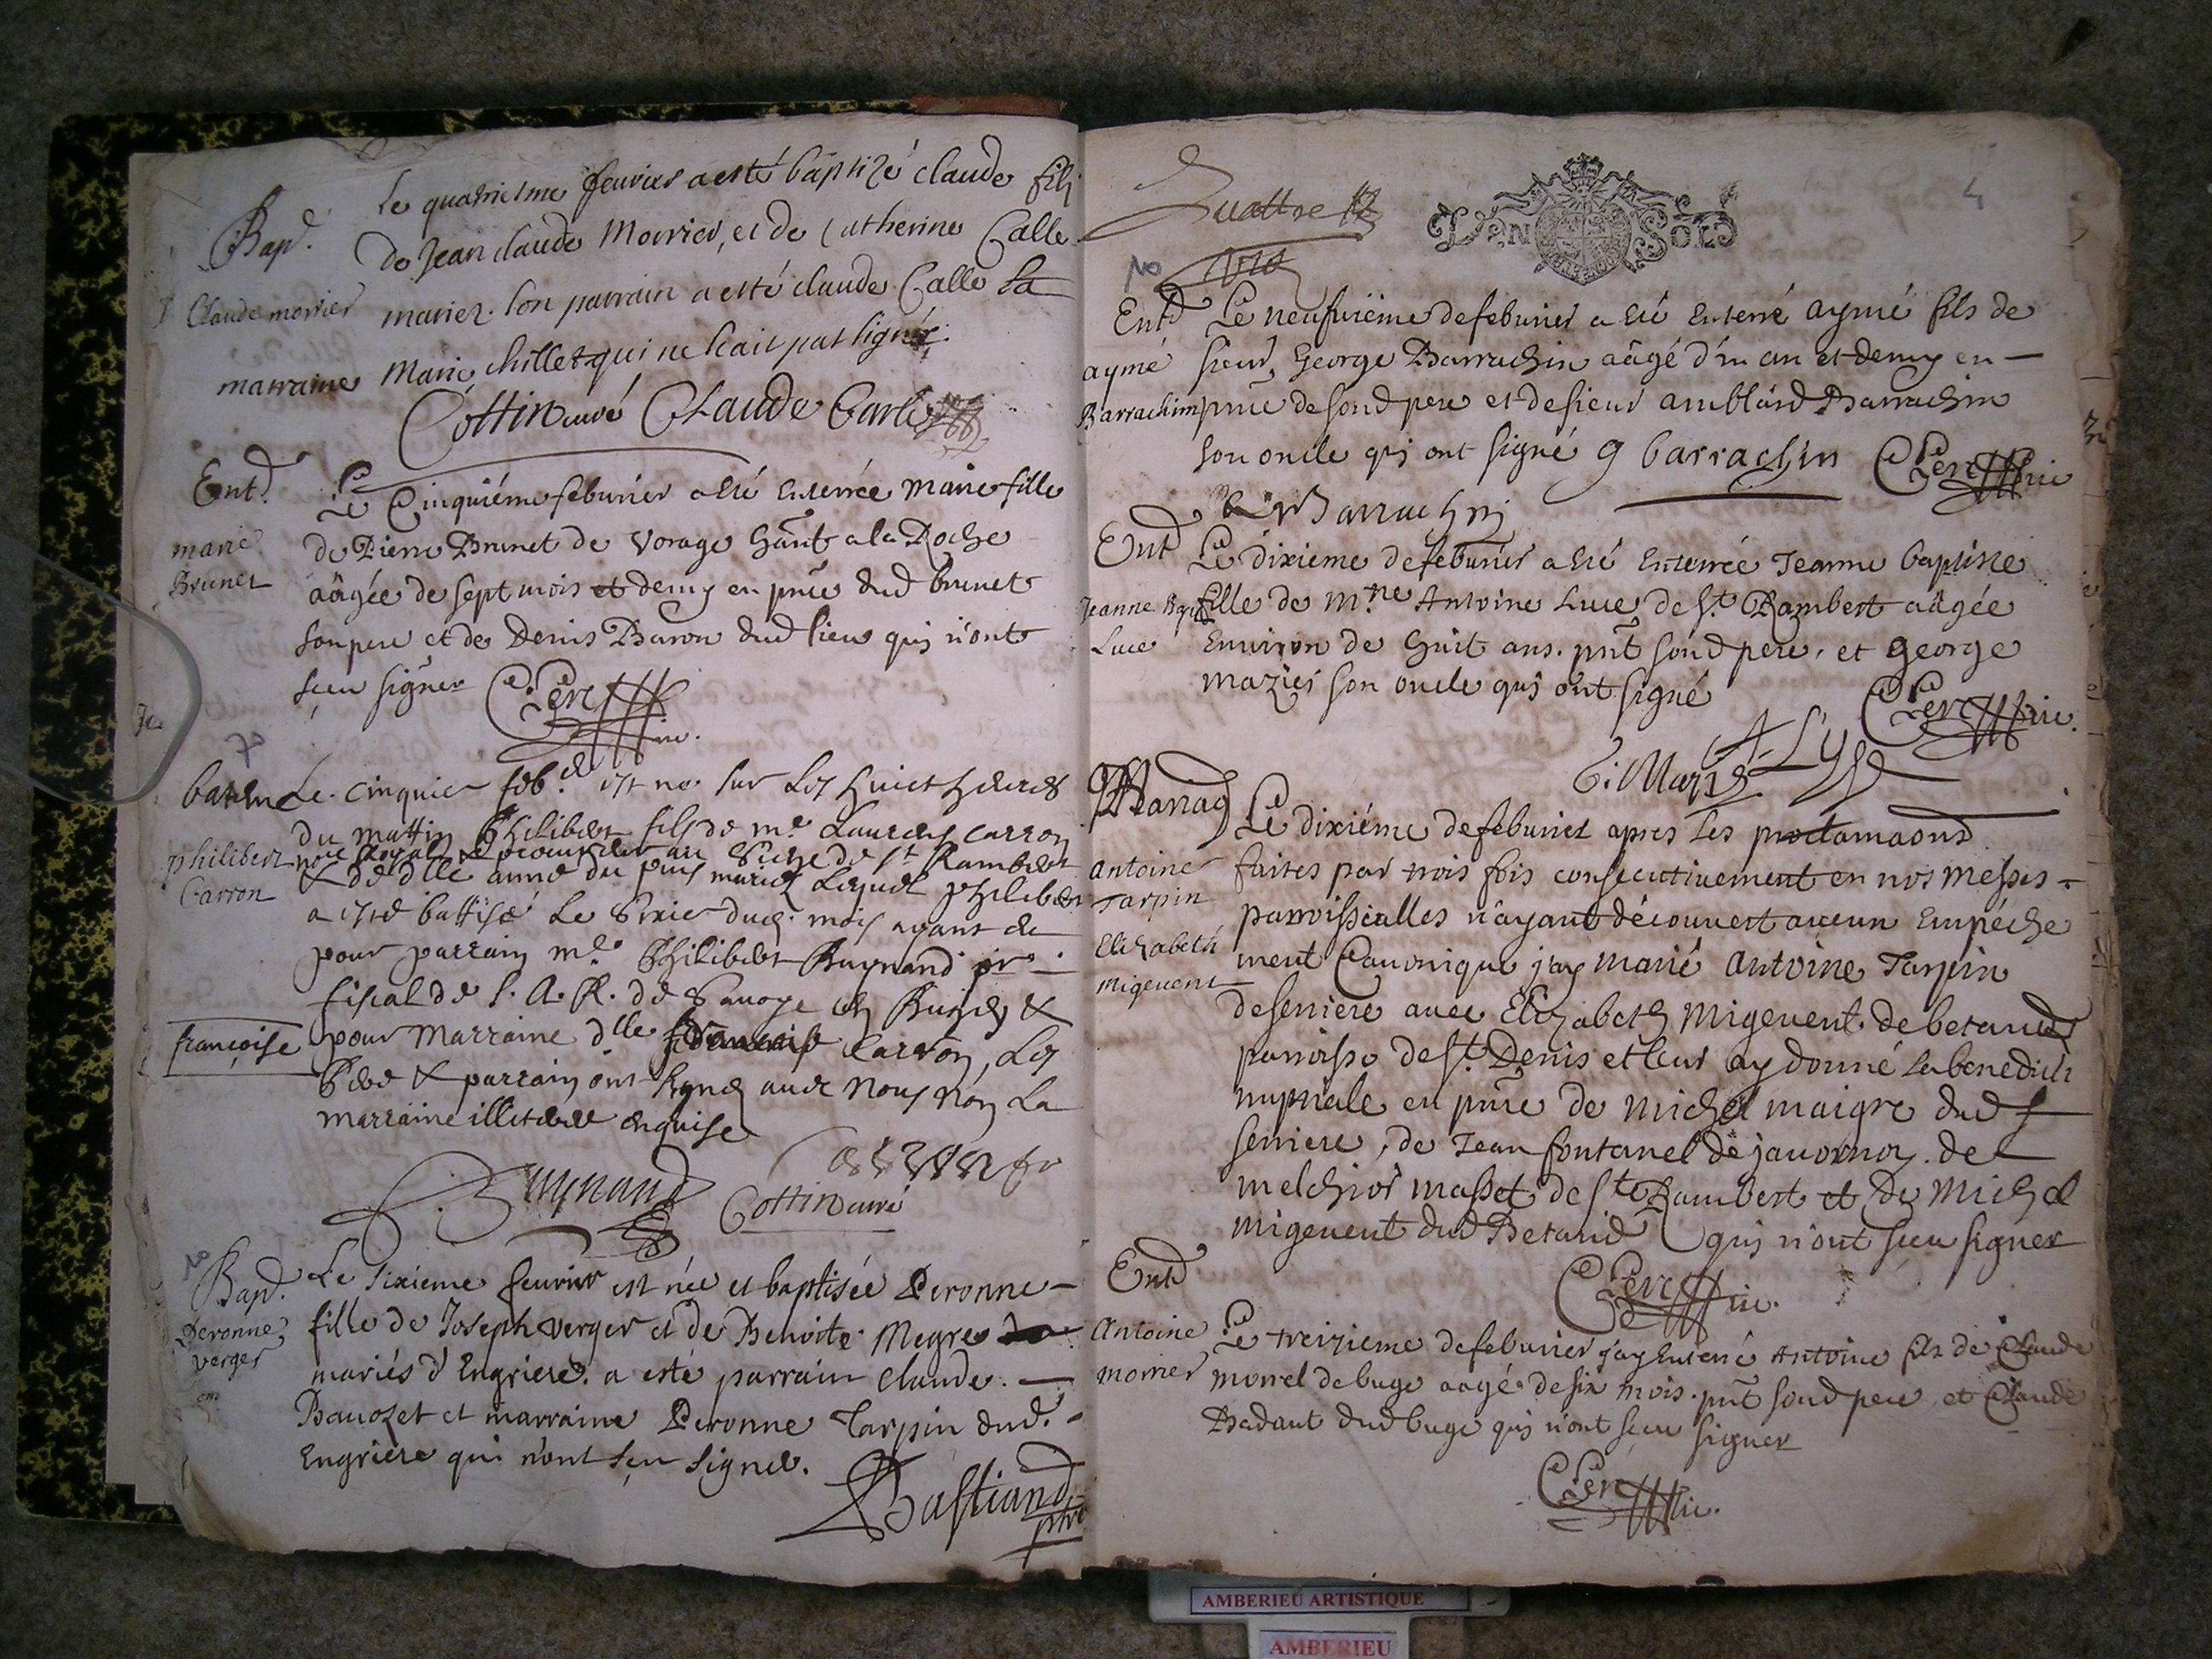 Bap.^d
Claude morrier
le quatriesme feurier a esté baptizé claude fils
de Jean claude Morrier, et de Catherine Calle
mariez. son parrain a esté claude Calle sa
marraine Marie chillet qui ne scait pas signer.
Cottin curé Claude
Ent^d.
marie
Brunet
Le Cinquiéme feburier a eté enterrée marie fille
de Pierre Brunet de Vorage hãnt a la Roche
aâgée de sept mois et demy en pnce dud brunet
son pere et de Denis Baron dud lieu qui n'ont
sceu signer
philibert
Carron
Le cinquie feb. est né sur les huict heures
du mattin Philibert fils de m^e Laurens carron
no^re Royal & procureur au Siege de S^t Rambert
& de d^lle anne du puis mariez Lequel philibert
a esté battisé Le Sixie dud. mois ayant eu
pour parrain m^e Philibert Buynand pr
fiscal de S. A. R. de Sauoye en Bugey &
françoise
pour Marraine d^lle carron, Les
Pere & parrain ont signé auec nous non La
marraine illiteree enquise
Buynand
Cottin curé
Bap^d.
Peronne
verger
Le sixieme feurier est née et baptisée Peronne
fille de Joseph verger et de Benoite Megre
mariés d'Engriere. a esté parrain claude
Bauozet et marraine Peronne Tarpin dud.
Engriere qui n'ont sçeu signer.
Bastiand
ptre
Quattre
4
DEN SOLS
Ent^d
aymé
Barrachin
Le neufuiéme de feburier a eté enterré aymé fils de
sieur George Barrachin aâgé d'un an et demy en
pnce de sond pere et de sieur amblard Barrachin
son oncle qui ont signé g barrachin
Barrachin
Ent^d
Jeanne Bap^te
Luce
Le dixieme de feburier a eté enterrée Jeanne baptiste
fille de m^tre Antoine Luce de S^t Rambert aâgée
Enuiron de huit ans. pnt sond pere, et George
mazier son oncle qui ont signé
Mariag
antoine
Tarpin
Elizabeth
migeuent
Le dixiéme de feburier apres les proclamaons
faites par trois fois consecutiuement en nos messes
parroissialles n'ayant découuert aucun empéche
ment Canonique j'ay marié antoine Tarpin
de serriere auec Elizabeth migeuent de betaud
parroisse de S^t. Denis et leur ay donné la benedict
nuptiale en pnce de michel maigre dud
serriere, de Jean fontanel de jauornoz. de
melchior masset de S^t Rambert et de michel
migeuent dud Betaud qui n'ont sceu signer
Ent^d
antoine
morrel
Le treizieme de feburier j'ay enterré Antoine fils de Claude
morrel de buge aagé de six mois. pnt sond pere, et Claude
Badaut dud buge qui n'ont sceu signer
AMBERIEU ARTISTIQUE
AMBERIEU